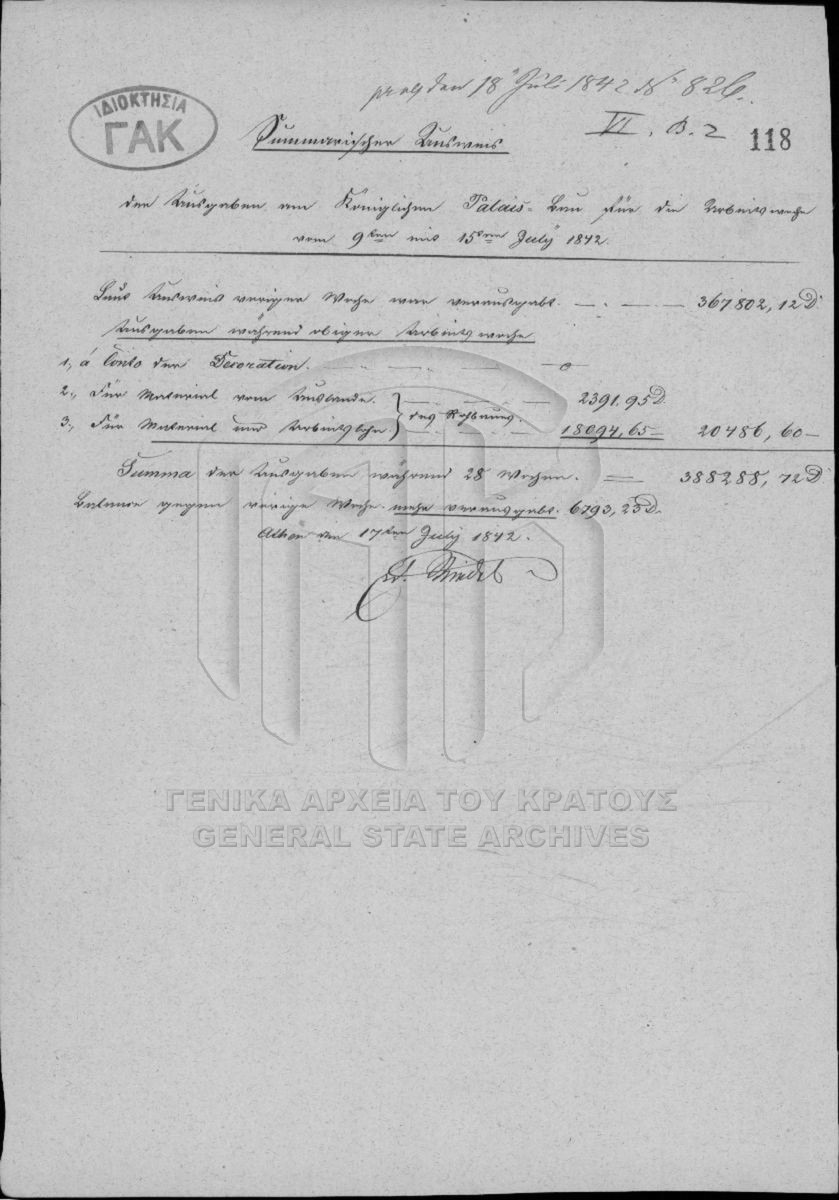 ΙΔΙΟΚΤΗΣΙΑ
ΓΑΚ
den 18 Juli 1842 No 826.
VI. B. 2
118
Summarischer Ausweis
der Ausgaben am Königlichen Palais-Bau für die Arbeitswoche
vom 9ten bis 15ten July 1842.
Laut Ausweis voriger Woche war verausgabt. 367802, 12 D
Ausgaben während obiger Arbeitswoche
1., á Conto der Decoration. o
2., Für Material vom Auslande. } des Rohbaues. 2391.95 D.
3., Für Material und Arbeitslohn 18094,65 20486, 60
Summa der Ausgaben während 28 Wochen. 388288, 72 D
Balance gegen vorige Woche mehr verausgabt. 6793, 23 D.
Athen den 17ten July 1842.
ΓΕΝΙΚΑ ΑΡΧΕΙΑ ΤΟΥ ΚΡΑΤΟΥΣ
GENERAL STATE ARCHIVES